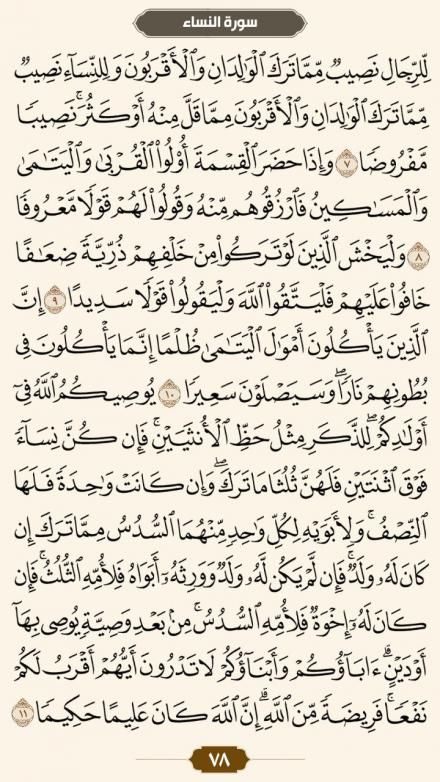 سورة النساء
لِّلرِّجَالِ نَصِيبٌ مِّمَّا تَرَكَ ٱلْوَٰلِدَانِ وَٱلْأَقْرَبُونَ وَلِلنِّسَآءِ نَصِيبٌ
مِّمَّا تَرَكَ ٱلْوَٰلِدَانِ وَٱلْأَقْرَبُونَ مِمَّا قَلَّ مِنْهُ أَوْ كَثُرَ ۚ نَصِيبًا
مَّفْرُوضًا ٧ وَإِذَا حَضَرَ ٱلْقِسْمَةَ أُو۟لُوا۟ ٱلْقُرْبَىٰ وَٱلْيَتَٰمَىٰ
وَٱلْمَسَٰكِينُ فَٱرْزُقُوهُم مِّنْهُ وَقُولُوا۟ لَهُمْ قَوْلًا مَّعْرُوفًا
٨ وَلْيَخْشَ ٱلَّذِينَ لَوْ تَرَكُوا۟ مِنْ خَلْفِهِمْ ذُرِّيَّةً ضِعَٰفًا
خَافُوا۟ عَلَيْهِمْ فَلْيَتَّقُوا۟ ٱللَّهَ وَلْيَقُولُوا۟ قَوْلًا سَدِيدًا ٩ إِنَّ
ٱلَّذِينَ يَأْكُلُونَ أَمْوَٰلَ ٱلْيَتَٰمَىٰ ظُلْمًا إِنَّمَا يَأْكُلُونَ فِى
بُطُونِهِمْ نَارًا ۖ وَسَيَصْلَوْنَ سَعِيرًا ١٠ يُوصِيكُمُ ٱللَّهُ فِىٓ
أَوْلَٰدِكُمْ ۖ لِلذَّكَرِ مِثْلُ حَظِّ ٱلْأُنثَيَيْنِ ۚ فَإِن كُنَّ نِسَآءً
فَوْقَ ٱثْنَتَيْنِ فَلَهُنَّ ثُلُثَا مَا تَرَكَ ۖ وَإِن كَانَتْ وَٰحِدَةً فَلَهَا
ٱلنِّصْفُ ۚ وَلِأَبَوَيْهِ لِكُلِّ وَٰحِدٍ مِّنْهُمَا ٱلسُّدُسُ مِمَّا تَرَكَ إِن
كَانَ لَهُۥ وَلَدٌ ۚ فَإِن لَّمْ يَكُن لَّهُۥ وَلَدٌ وَوَرِثَهُۥٓ أَبَوَاهُ فَلِأُمِّهِ ٱلثُّلُثُ ۚ فَإِن
كَانَ لَهُۥٓ إِخْوَةٌ فَلِأُمِّهِ ٱلسُّدُسُ ۚ مِنۢ بَعْدِ وَصِيَّةٍ يُوصِى بِهَآ
أَوْ دَيْنٍ ۗ ءَابَآؤُكُمْ وَأَبْنَآؤُكُمْ لَا تَدْرُونَ أَيُّهُمْ أَقْرَبُ لَكُمْ
نَفْعًا ۚ فَرِيضَةً مِّنَ ٱللَّهِ ۗ إِنَّ ٱللَّهَ كَانَ عَلِيمًا حَكِيمًا ١١
٧٨